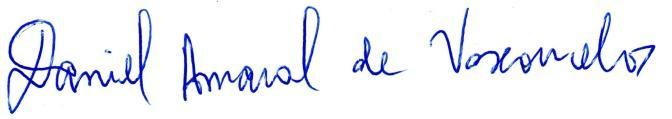 Daniel Amaral de Vasconcelos